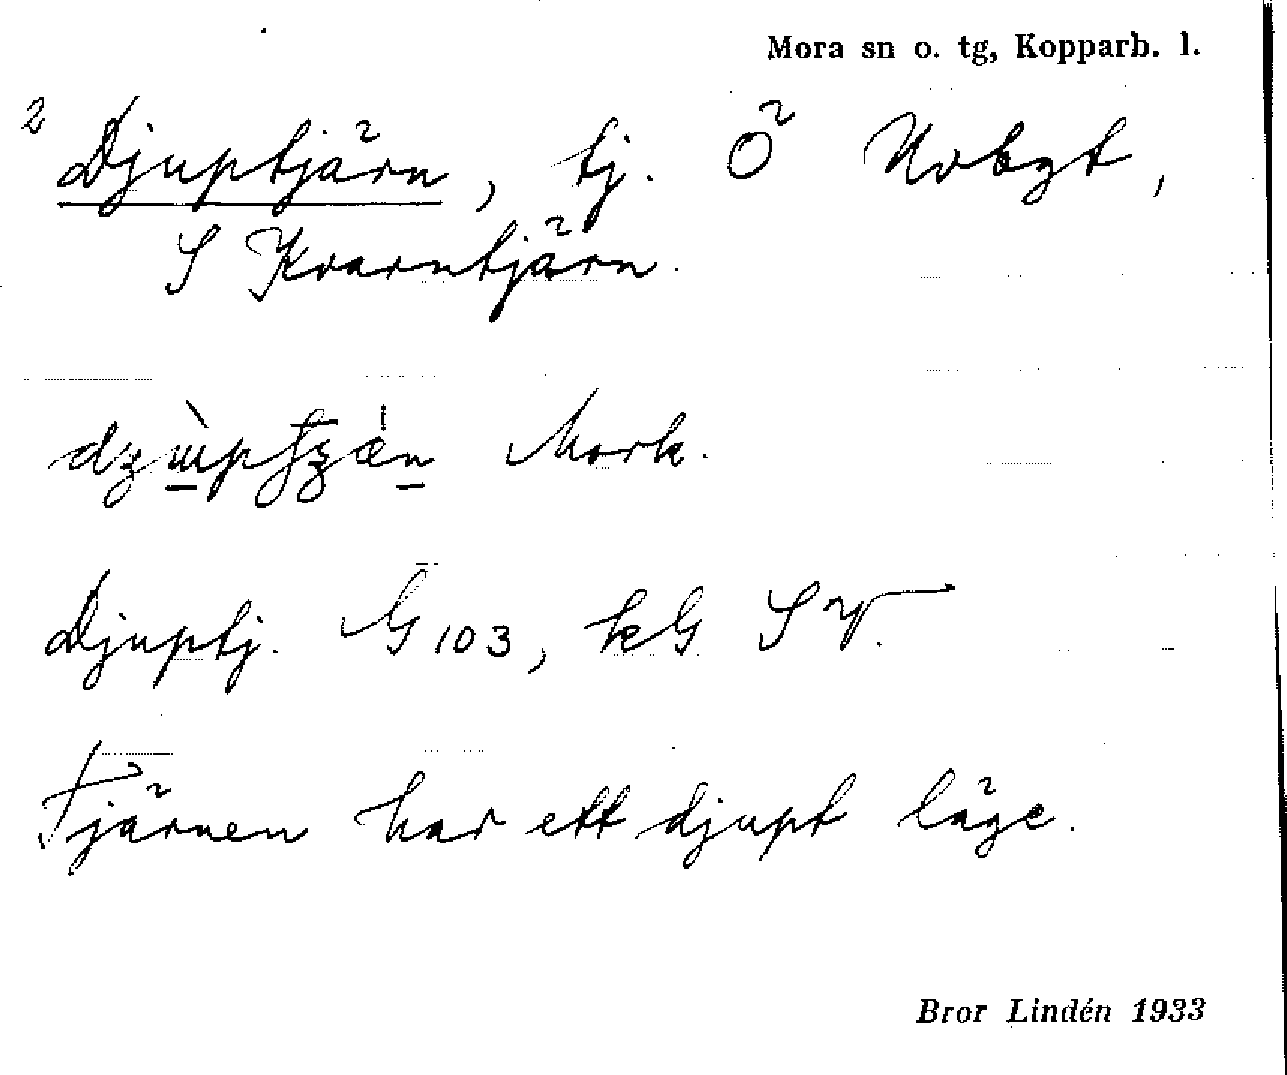 Mora sn o. tg, Kopparb. l.
2 Djuptjärn, tj. Ö
S Kvarntjärn.
Mork.
Djuptj. G 103, kG SV.
Tjärnen har ett djupt läge.
Bror Lindén 1933